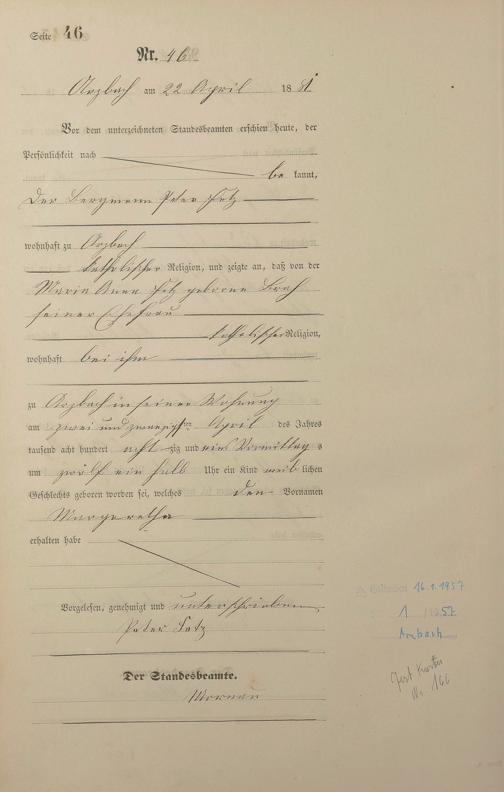 Seite 46
Nr. 46.
Arzbach am 22 April 1881
Vor dem unterzeichneten Standesbeamten erschien heute, der
Persönlichkeit nach
be kannt,
der Bergmann Peter
wohnhaft zu Arzbach
katholischer Religion, und zeigte an, daß von der
Maria Anna geborne
seiner Ehefrau
katholischer Religion,
wohnhaft bei ihm
zu Arzbach in seiner Wohnung
am zwei und zwanzigsten April des Jahres
tausend acht hundert acht zig und eins Vormittags
um zwölf ein halb Uhr ein Kind weib lichen
Geschlechts geboren worden sei, welches den Vornamen
Margaretha
erhalten habe
Vorgelesen, genehmigt und unterschrieben.
Peter
Der Standesbeamte.
16.1.1957
1 57
Arzbach
Nr 166